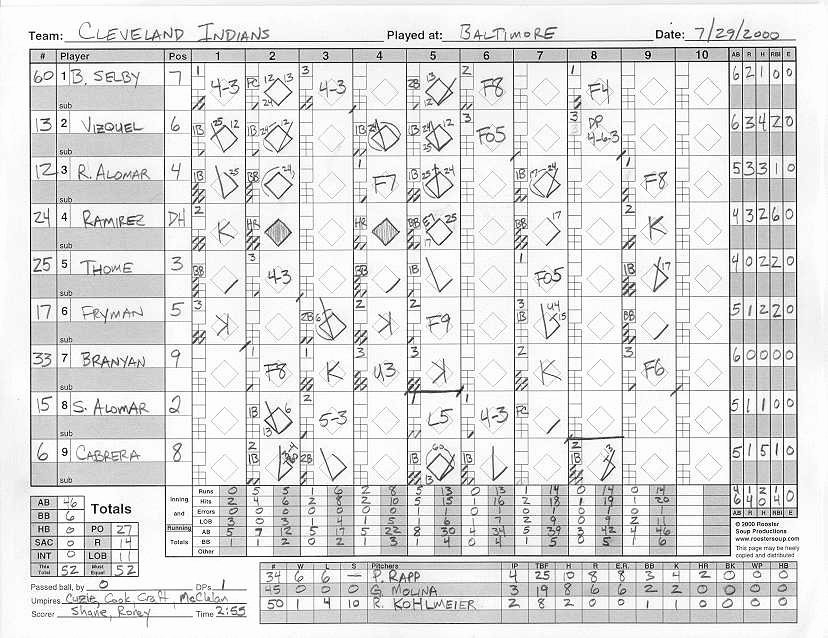 Team: CLEVELAND INDIANS Played at: BALTIMORE Date: 7/29/2000
# Player Pos 1 2 3 4 5 6 7 8 9 10 AB R H RBI E
60 1 B. SELBY 7 4-3 FC 12 13 24 4-3 2B 13 12 F8 F4 6 2 1 0 0
sub
13 2 VIZQUEL 6 1B 25 12 1B 24 12 1B 24 1B 24 12 25 FO5 DP 4-6-3 6 3 4 2 0
sub
12 3 R. ALOMAR 4 1B 25 BB 24 F7 1B 25 24 1B 17 24 F8 5 3 3 1 0
sub
24 4 RAMIREZ DH K HR HR BB E7 25 17 BB 17 K 4 3 2 6 0
sub
25 5 THOME 3 BB 4-3 BB 1B FO5 1B 17 4 0 2 2 0
sub
17 6 FRYMAN 5 K 2B 6 K F9 1B U4 15 BB 5 1 2 2 0
sub
33 7 BRANYAN 9 F8 K U3 K K F6 6 0 0 0 0
sub
15 8 S. ALOMAR 2 1B 6 13 5-3 L5 4-3 FC 5 1 1 0 0
sub
6 9 CABRERA 8 1B 2B 1B 60 13 1B 1B 5 1 5 1 0
sub
Inning and Running Totals
Runs 0 5 5 1 6 2 8 5 13 0 13 1 14 0 14 0 14
Hits 2 4 6 2 8 2 10 5 15 1 16 2 18 1 19 1 20
Errors 0 0 0 0 0 0 0 0 0 0 0 0 0 0 0 0 0
LOB 3 0 3 1 4 1 5 1 6 1 7 2 9 0 9 2 11
AB 5 7 12 5 17 5 22 8 30 4 34 5 39 3 42 4 46
BB 1 1 2 0 2 1 3 1 4 0 4 1 5 0 5 1 6
Other
46 14 20 14 0
AB R H RBI E
AB 46 Totals
BB 6
HB 0 PO 27
SAC 0 R 14
INT 0 LOB 11
This Total 52 Must Equal 52
© 2000 Rooster Soup Productions
www.roostersoup.com
This page may be freely copied and distributed
Passed ball, by 0 DPs 1
Umpires Cuzie, Cook, Craft, McClelan
Scorer Shane, Rorey Time 2:55
# W L S Pitchers IP TBF H R E.R. BB K HR BK WP HB
34 6 6 — P. RAPP 4 25 10 8 8 3 4 2 0 0 0
45 0 0 0 G. MOLINA 3 19 8 6 6 2 2 0 0 0 0
50 1 4 10 R. KOHLMEIER 2 8 2 0 0 1 1 0 0 0 0